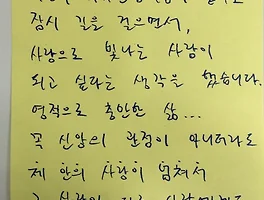 잠시 길을 걸으면서,
사랑으로 빛나는 사람이
되고 싶다는 생각을 했습니다.
영적으로 충만한 삶...
꼭 신앙의 관점이 아니더라도
제 안의 사랑이 넘쳐서